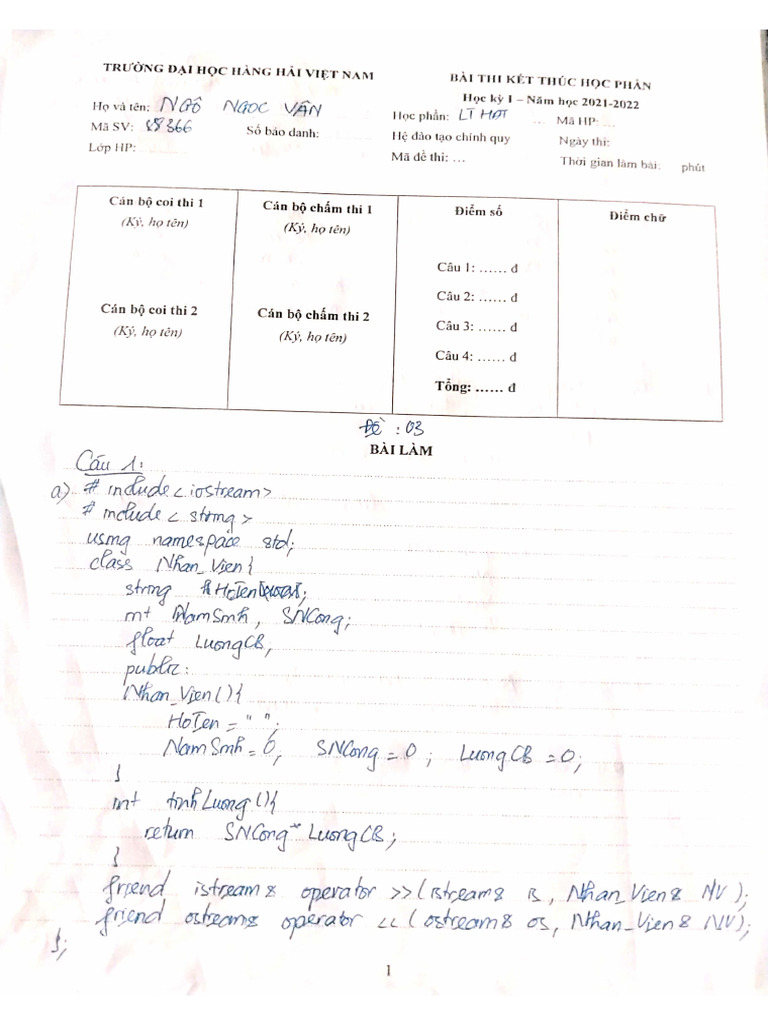 TRƯỜNG ĐẠI HỌC HÀNG HẢI VIỆT NAM
Họ và tên: NGÔ NGỌC VÂN
Mã SV: 88366 Số báo danh:
Lớp HP:
BÀI THI KẾT THÚC HỌC PHẦN
Học kỳ I – Năm học 2021-2022
Học phần: LT HĐT ... Mã HP: ...
Hệ đào tạo chính quy Ngày thi:
Mã đề thi: ... Thời gian làm bài: phút
Cán bộ coi thi 1
(Ký, họ tên)
Cán bộ coi thi 2
(Ký, họ tên)
Cán bộ chấm thi 1
(Ký, họ tên)
Cán bộ chấm thi 2
(Ký, họ tên)
Điểm số
Câu 1: ...... đ
Câu 2: ...... đ
Câu 3: ...... đ
Câu 4: ...... đ
Tổng: ...... đ
Điểm chữ
Đề : 03
BÀI LÀM
Câu 1:
a) # include <iostream>
# include < string >
using namespace std;
class Nhan_Vien {
string HoTen;
int NamSinh, SNCong;
float LuongCB;
public:
Nhan_Vien () {
HoTen = " ";
NamSinh = 0; SNCong = 0 ; LuongCB = 0;
}
int tinhLuong () {
return SNCong * LuongCB ;
}
friend istream & operator >> (istream & is , Nhan_Vien & NV );
friend ostream & operator << ( ostream & os, Nhan_Vien & NV);
};
1